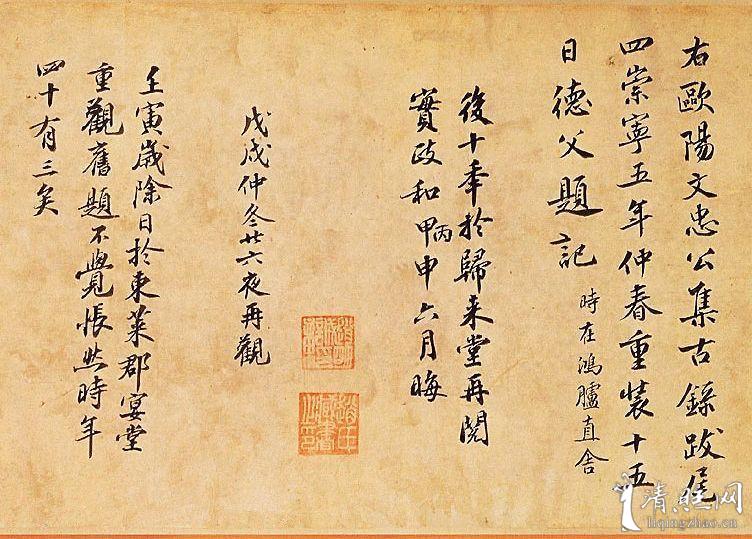 右歐陽文忠公集古錄跋尾
四崇寧五年仲春重裝十五
日德父題記 時在鴻臚直舍
後十年於歸来堂再閱
實政和甲丙申六月晦
戊戌仲冬廿六夜再觀
壬寅歲除日於東萊郡宴堂
重觀舊題不覺悵然時年
四十有三矣
清照网
liqingzhao.cn